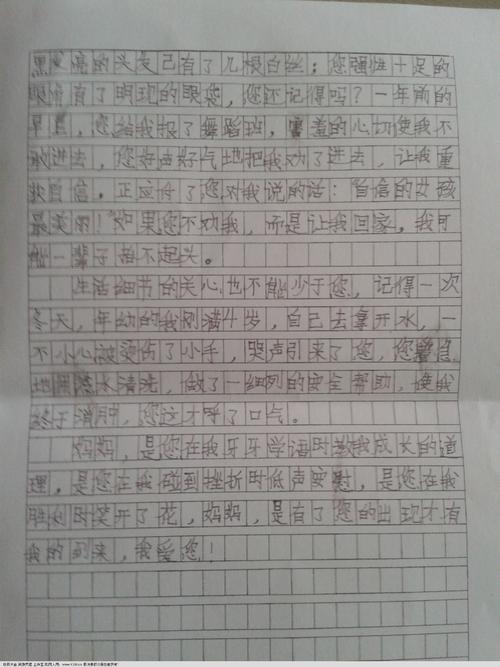 黑又亮的头发已有了几根白丝；您强性十足的
眼角有了明现的眼袋，您还记得吗？一年前的
早晨，您给我报了舞蹈班，害羞的心切使我不
敢进去，您好声好气地把我劝了进去，让我重
获自信。正应母了您对我说的话："自信的女孩
最美丽！"如果您不劝我，而是让我回家，我可
能一辈子抬不起头。
生活细节的关心也不能少于您，记得一次
冬天，年幼的我刚满4岁，自己去拿开水，一
不小心被烫伤了小手，哭声引来了您，您紧急
地用凉水清洗，做了一细列的安全帮助，使我
终于消肿，您这才呼了口气。
妈妈，是您在我牙牙学语时教我成长的道
理，是您在我碰到挫折时低声安慰，是您在我
胜利时笑开了花，妈妈，是有了您的出现才有
我的到来，我爱您！